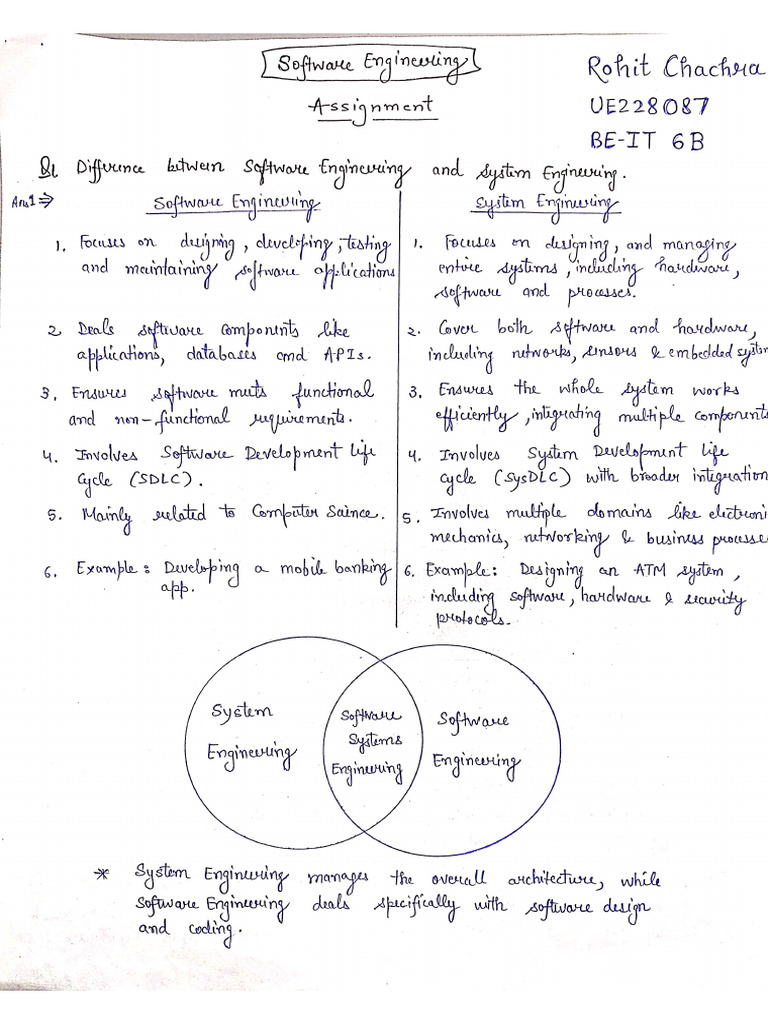 Software Engineering
Assignment
Rohit Chachra
UE228087
BE-IT 6B
Q1 Difference between Software Engineering and System Engineering.
Ans1⇒
Software Engineering
1. Focuses on designing, developing, testing
and maintaining software applications
2 Deals software components like
applications, databases and APIs.
3. Ensures software meets functional
and non-functional requirements.
4. Involves Software Development Life
Cycle (SDLC).
5. Mainly related to Computer Science.
6. Example: Developing a mobile banking
app.
System Engineering
1. Focuses on designing, and managing
entire systems, including hardware,
software and processes.
2. Cover both software and hardware,
including networks, sensors & embedded system
3. Ensures the whole system works
efficiently, integrating multiple components
4. Involves System Development Life
Cycle (SysDLC) with broader integration
5. Involves multiple domains like electroni
mechanics, networking & business processe
6. Example: Designing an ATM system,
including software, hardware & security
protocols.
System
Engineering
Software
Systems
Engineering
Software
Engineering
* System Engineering manages the overall architecture, while
Software Engineering deals specifically with software design
and coding.